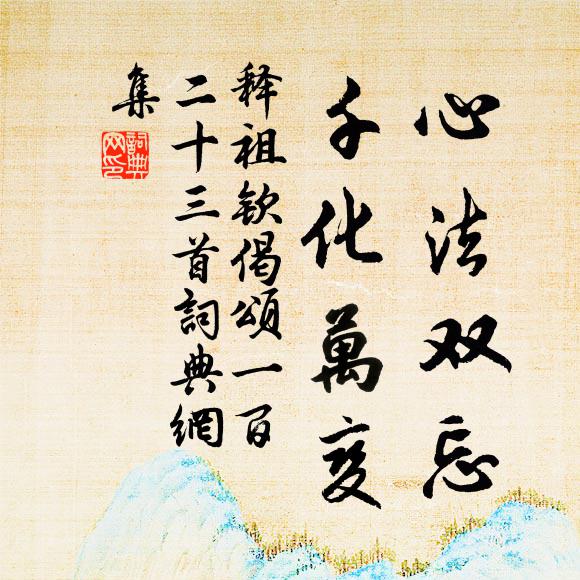 心法双忘
千化萬变
释祖钦偈頌一百
二十三首詞典網
集
詞典
网印